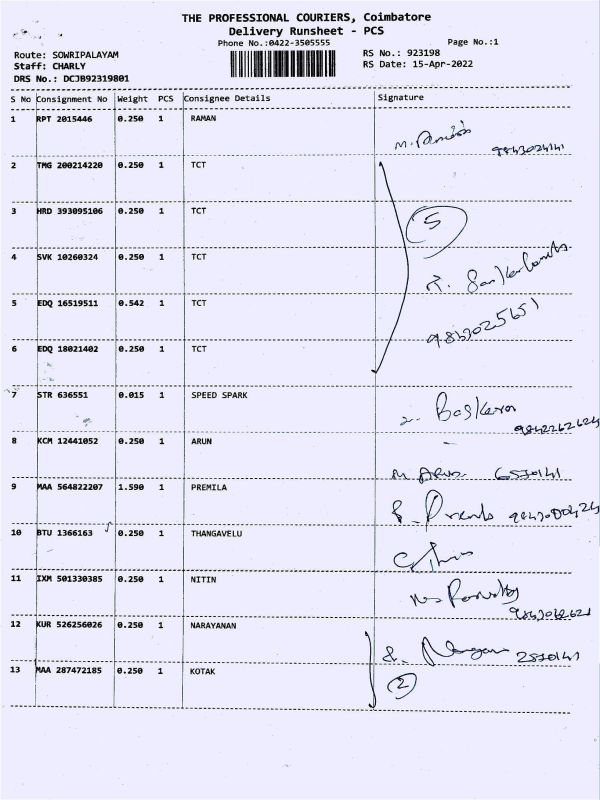 THE PROFESSIONAL COURIERS, Coimbatore
Delivery Runsheet - PCS
Phone No.:0422-3505555 Page No.:1
Route: SOWRIPALAYAM RS No.: 923198
Staff: CHARLY RS Date: 15-Apr-2022
DRS No.: DCJB92319801
S No Consignment No Weight PCS Consignee Details Signature
1 RPT 2015446 0.250 1 RAMAN
2 TMG 200214220 0.250 1 TCT
3 HRD 393095106 0.250 1 TCT 5
4 SVK 10260324 0.250 1 TCT
5 EDQ 16519511 0.542 1 TCT 9843025651
6 EDQ 18021402 0.250 1 TCT
7 STR 636551 0.015 1 SPEED SPARK Baskaran
9842262624
8 KCM 12441052 0.250 1 ARUN M. Arun 6570141
9 MAA 564822207 1.590 1 PREMILA
10 BTU 1366163 0.250 1 THANGAVELU
11 IXM 501330385 0.250 1 NITIN
12 KUR 526256026 0.250 1 NARAYANAN
13 MAA 287472185 0.250 1 KOTAK 2